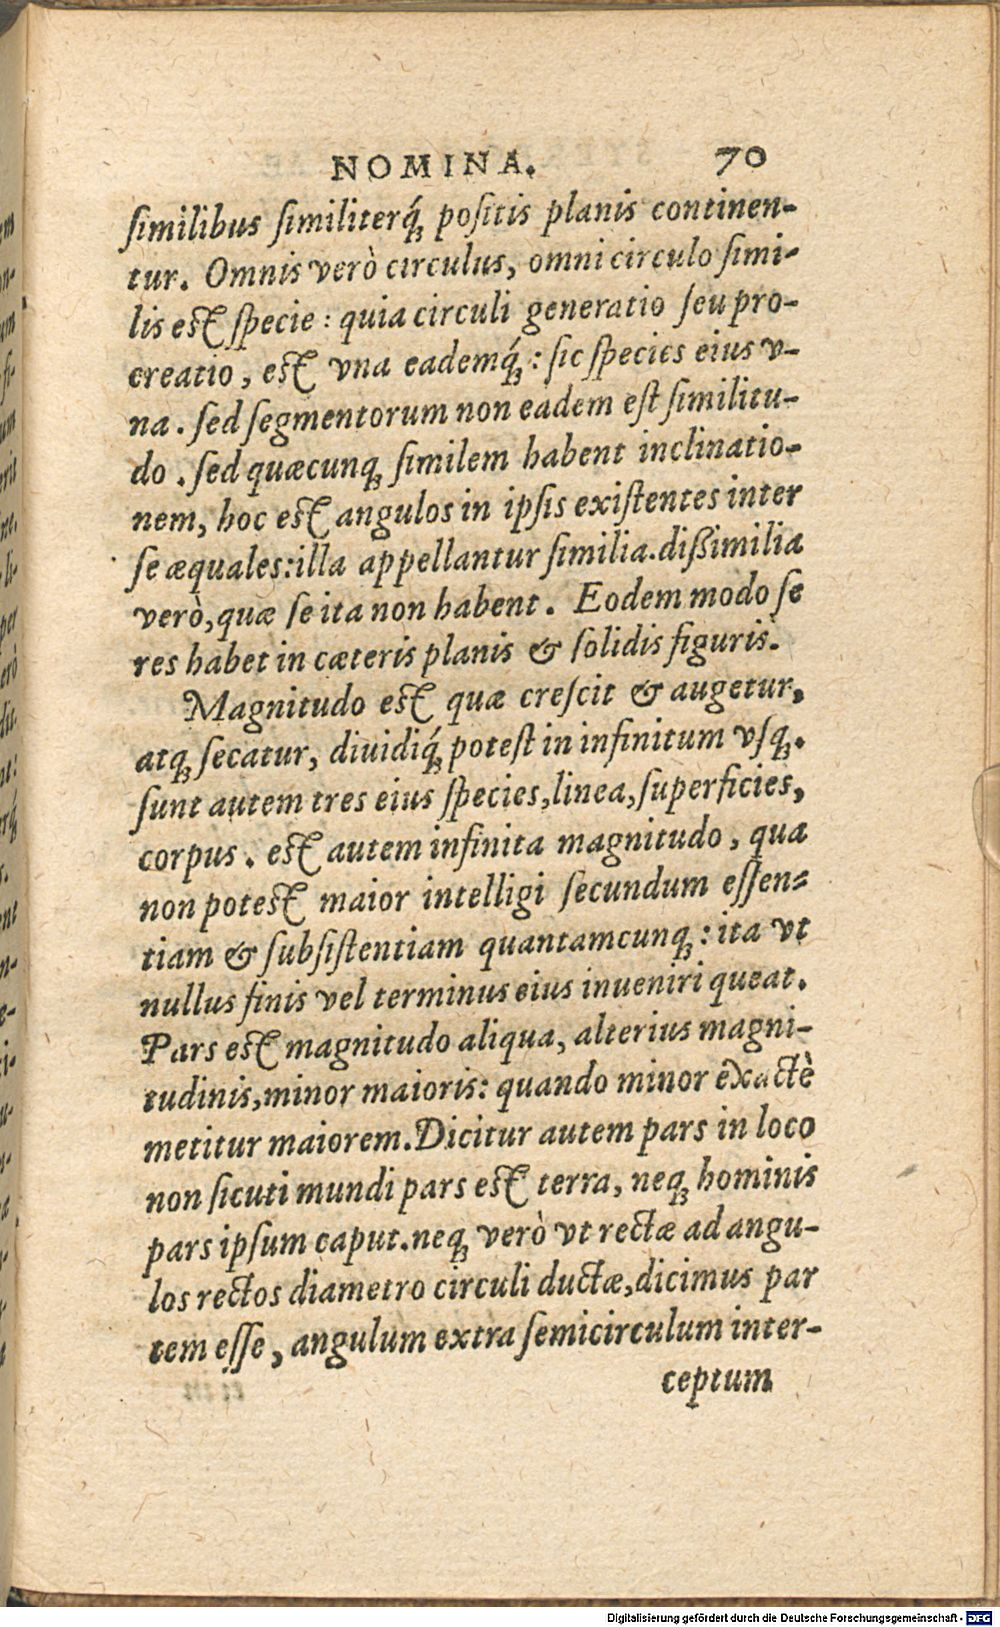 NOMINA. 70
ſimilibus ſimiliterq́ꝫ poſitis planis continen-
tur. Omnis verò circulus, omni circulo ſimi-
lis eſt ſpecie: quia circuli generatio ſeu pro-
creatio, eſt vna eademq́ꝫ: ſic ſpecies eius v-
na. ſed ſegmentorum non eadem eſt ſimilitu-
do. ſed quæcunqꝫ ſimilem habent inclinatio-
nem, hoc eſt angulos in ipſis exiſtentes inter
ſe æquales: illa appellantur ſimilia. dißimilia
verò, quæ ſe ita non habent. Eodem modo ſe
res habet in cæteris planis & ſolidis figuris.
Magnitudo eſt quæ creſcit & augetur,
atqꝫ ſecatur, diuidiq́ꝫ poteſt in infinitum vſqꝫ.
ſunt autem tres eius ſpecies, linea, ſuperficies,
corpus. eſt autem infinita magnitudo, qua
non poteſt maior intelligi ſecundum eſſen-
tiam & ſubſiſtentiam quantamcunqꝫ: ita vt
nullus finis vel terminus eius inueniri queat.
Pars eſt magnitudo aliqua, alterius magni-
tudinis, minor maioris: quando minor exactè
metitur maiorem. Dicitur autem pars in loco
non ſicuti mundi pars eſt terra, neqꝫ hominis
pars ipſum caput. neqꝫ verò vt rectæ ad angu-
los rectos diametro circuli ductæ, dicimus par
tem eſſe, angulum extra ſemicirculum inter-
ceptum
Digitalisierung gefördert durch die Deutsche Forschungsgemeinschaft - DFG